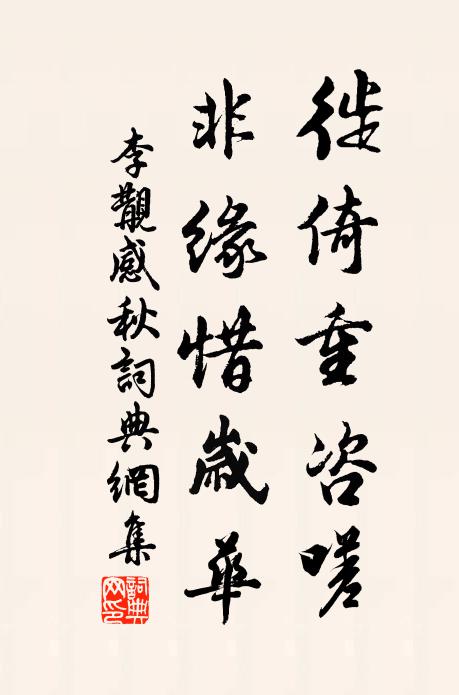 徙倚重咨嗟
非缘惜歲華
李覯感秋詞典網集
詞典網印